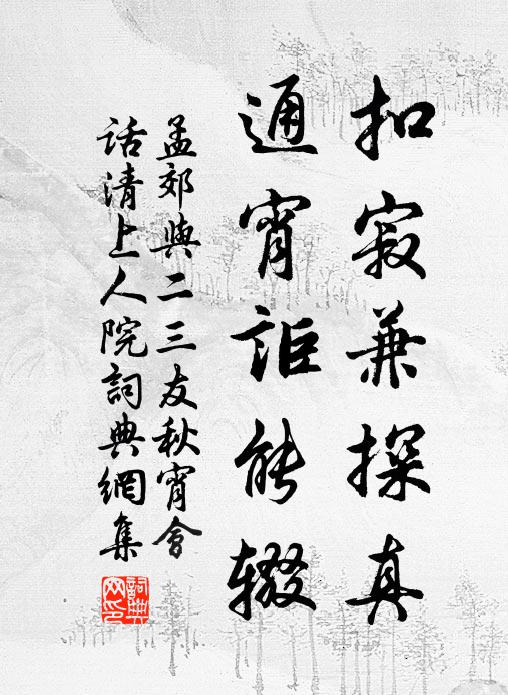 扣寂兼探真
通宵詎能辍
孟郊與二三友秋宵會
话清上人院詞典網集